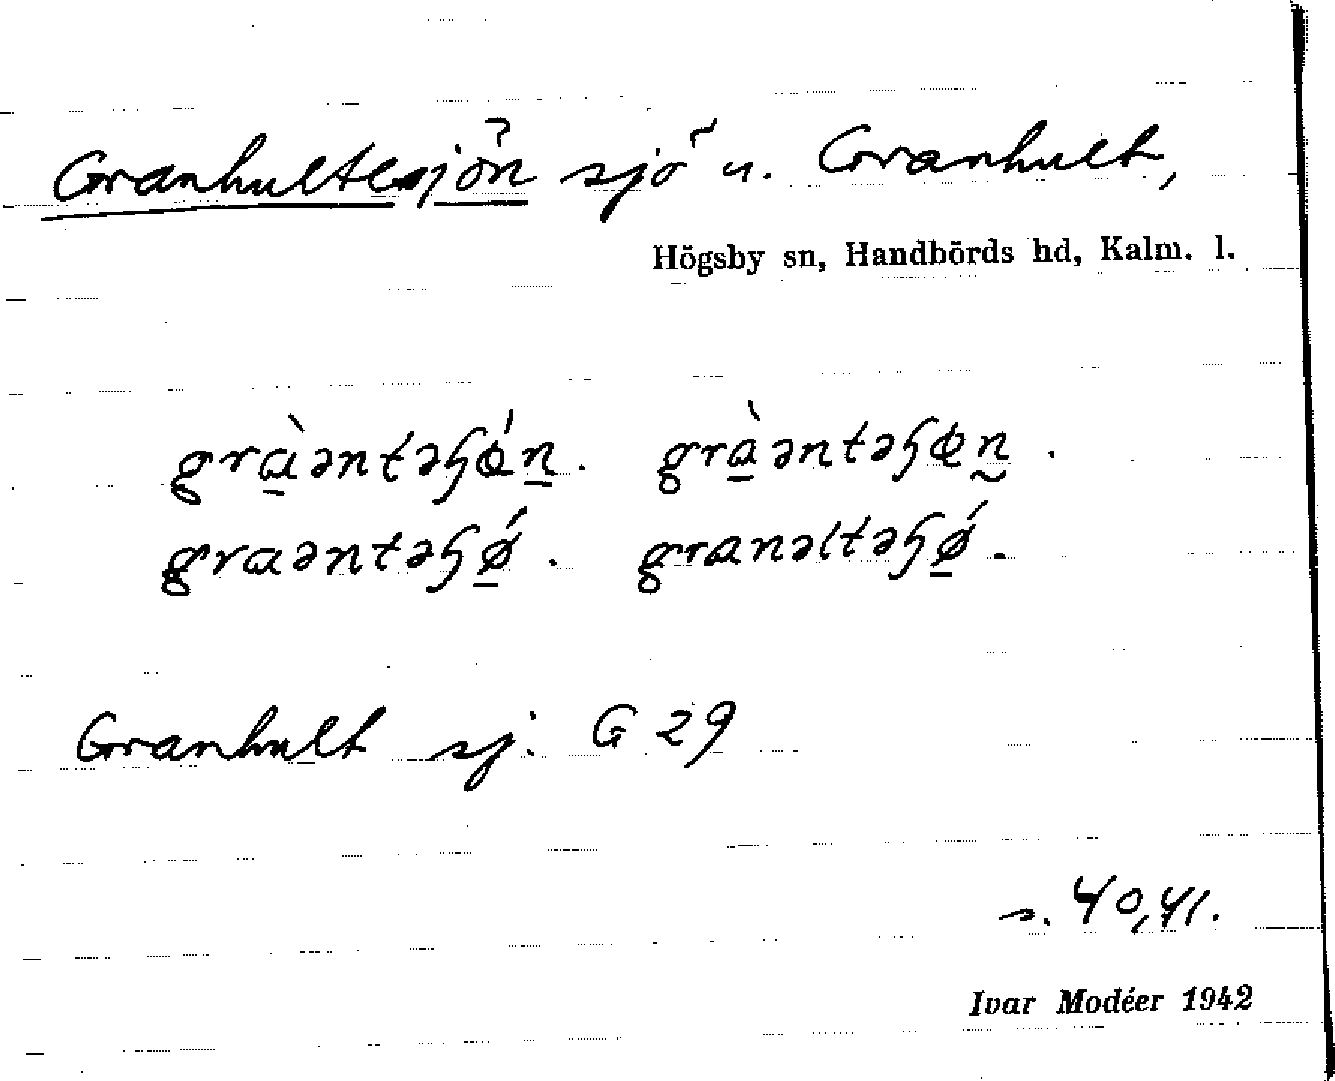 Granhultesjön sjö u. Granhult,
Högsby sn, Handbörds hd, Kalm. l.
gràəntəɧǿn. gràəntəɧøn.
graəntəɧǿ. granəltəɧǿ.
Granhult sj. G 29
s. 40,41.
Ivar Modéer 1942